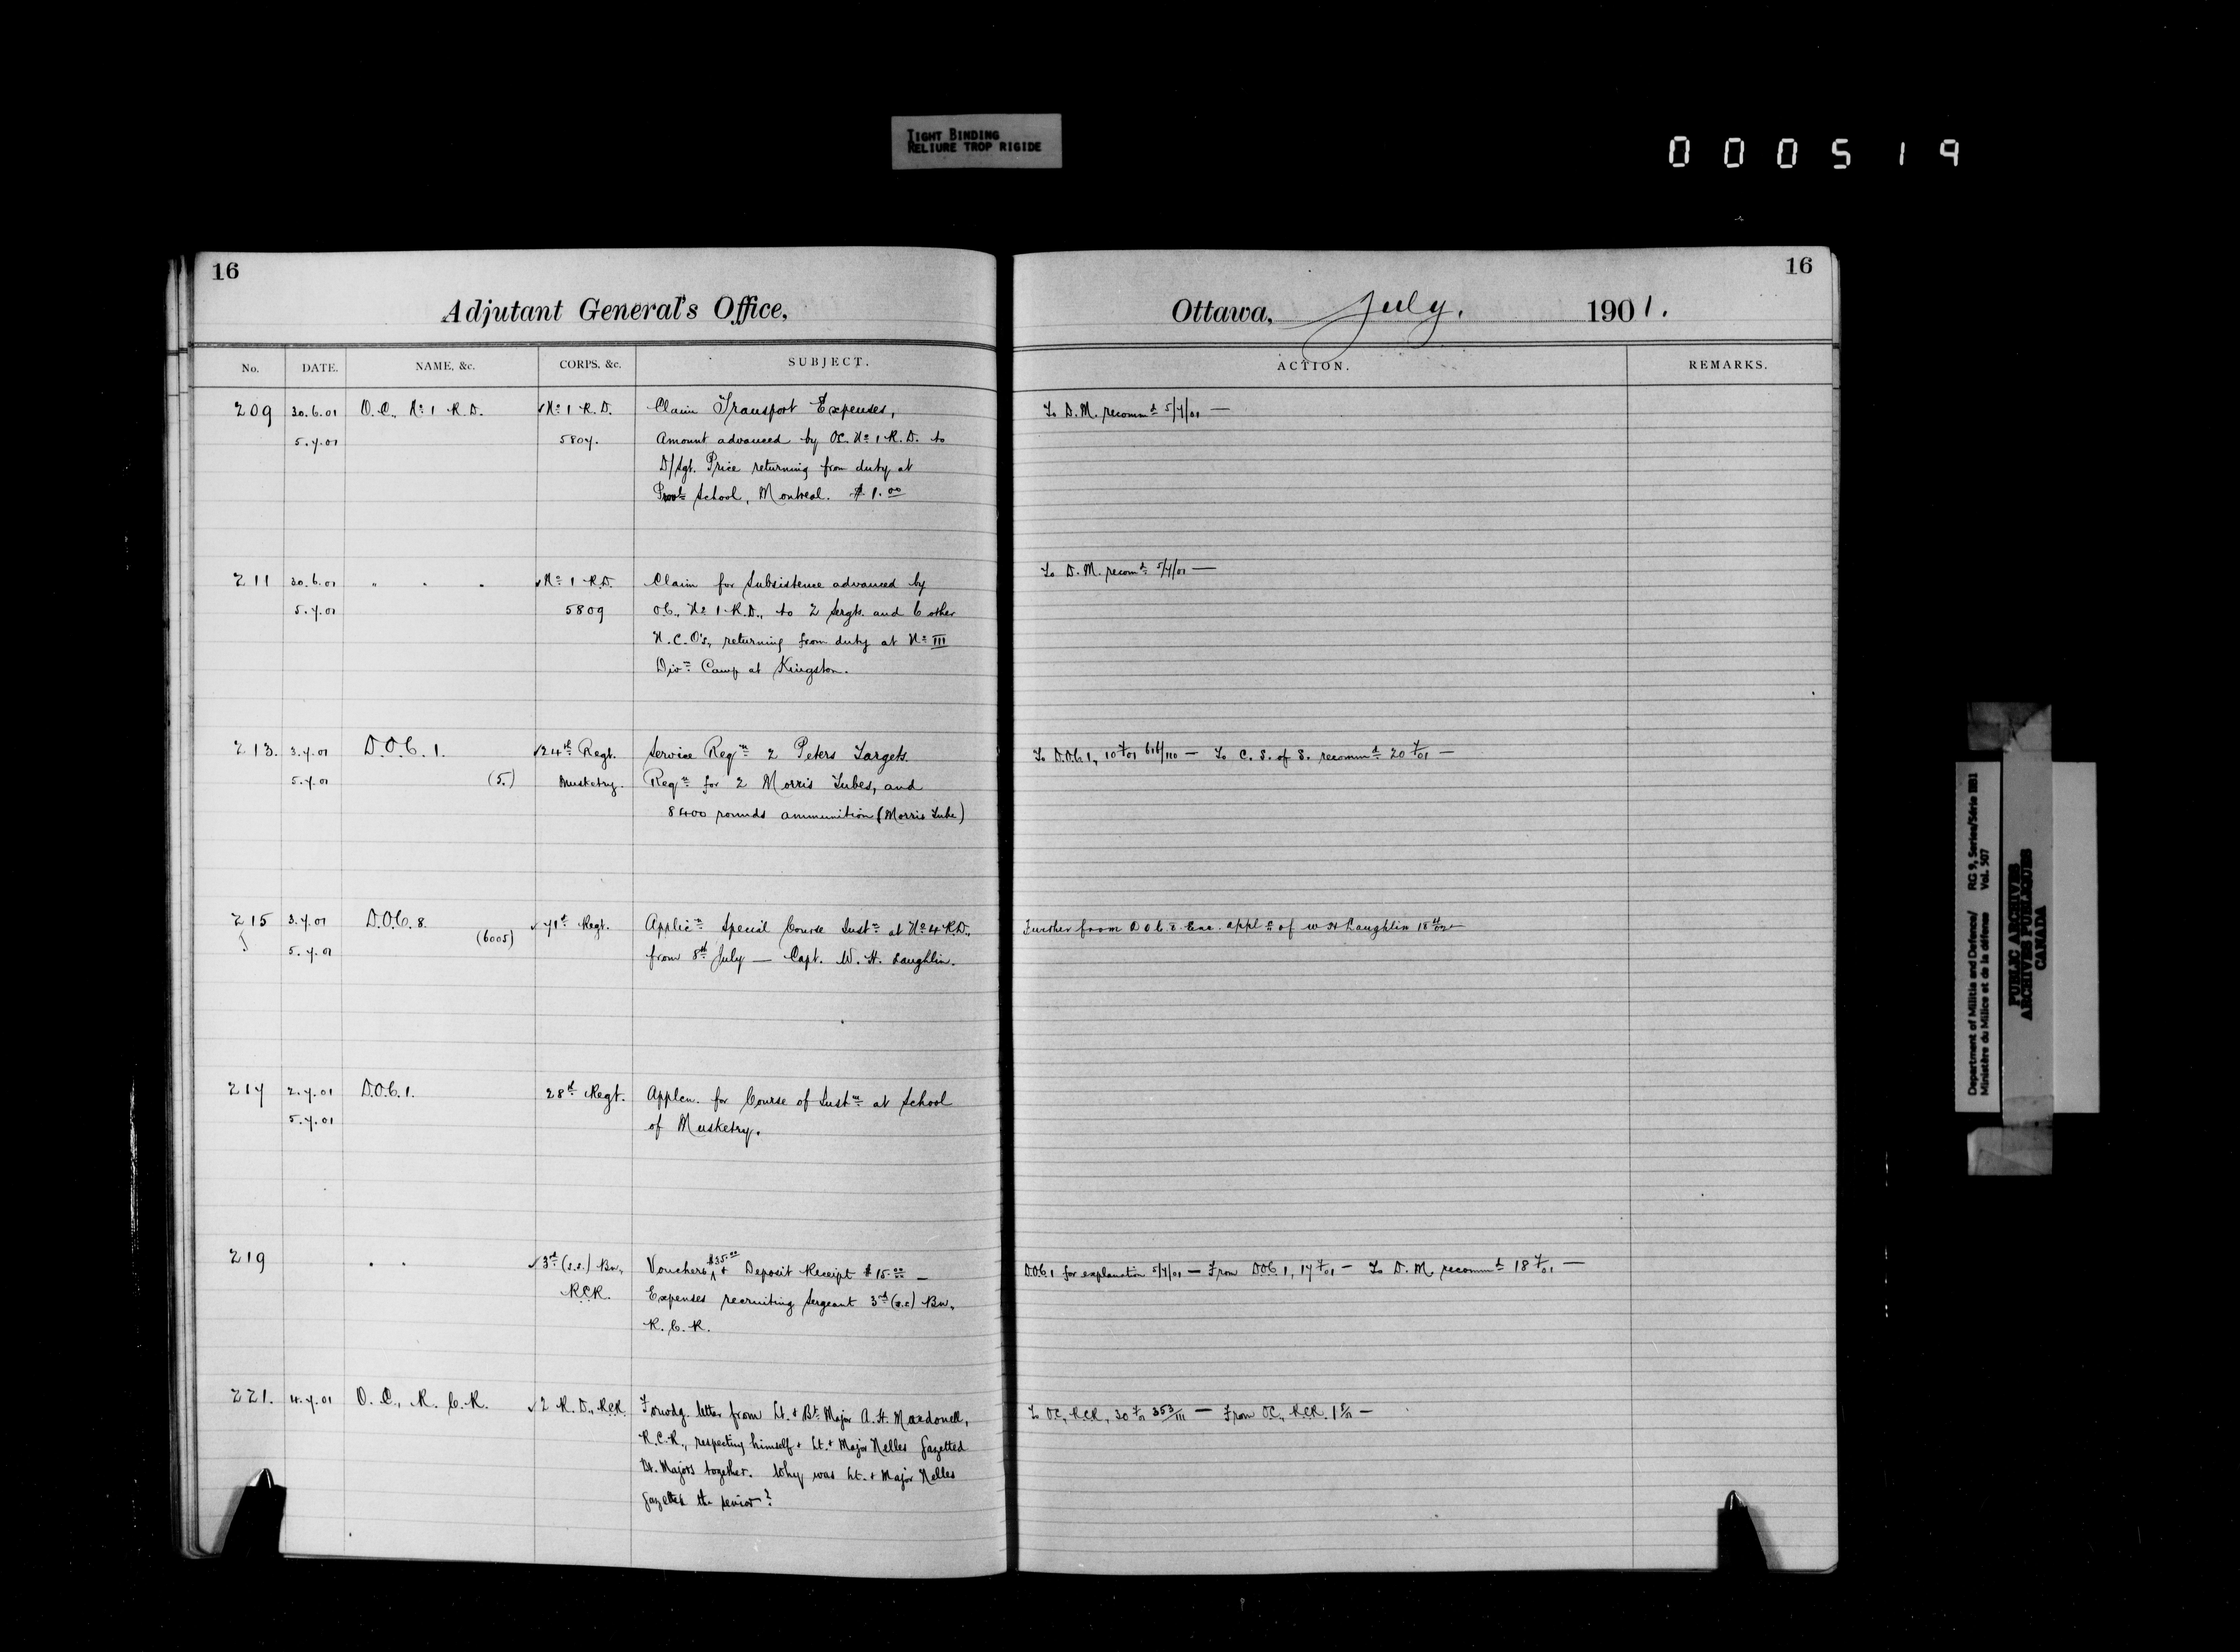 TIGHT BINDING
RELIURE TROP RIGIDE
000519
16
Adjutant General's Office,
No. DATE. NAME, &c. CORPS, &c. SUBJECT.
209 30.6.01 O.C., No 1 R.D. √No 1 R.D. Claim Transport Expenses,
5.7.01 5807. Amount advanced by OC. No 1 R.D. to
D/Sgt. Price returning from duty at
Provl School, Montreal. $1.00
211 30.6.01 " " " √No 1 R.D. Claim for Subsistence advanced by
5.7.01 5809 OC., No 1 R.D., to 2 Sergts. and 6 other
N.C.O's, returning from duty at No III
Divn Camp at Kingston.
213. 3.7.01 D.O.C. 1. √24th Regt. Service Reqn 2 Peters Targets.
5.7.01 (5.) Musketry. Reqn for 2 Morris Tubes, and
8400 rounds ammunition (Morris Tube)
215 3.7.01 D.O.C. 8. (6005) √71st Regt. Applicn Special Course Instn at No 4 R.D.,
5.7.01 from 8th July — Capt. W. H. Laughlin.
217 2.7.01 D.O.C. 1. 28th Regt. Applcn. for Course of Instn at School
5.7.01 of Musketry.
219 " " √3rd (s.s.) Bn, Vouchers $35.00 + Deposit Receipt $15.00 —
RCR. Expenses recruiting Sergeant 3rd (s.s) Bn,
R.C.R.
221. 4.7.01 O.C., R.C.R. √2 R.D., RCR. Forwdg. letter from Lt. + Bt. Major A. H. Macdonell,
R.C.R., respecting himself + Lt. + Major Nelles gazetted
Bt. Majors together. Why was Lt. + Major Nelles
gazetted the senior?
16
Ottawa, July. 1901.
ACTION. REMARKS.
To D.M. recommd 5/7/01 —
To D.M. recomd 5/7/01 —
To D.O.C. 1, 10 7/01 616/110 — To C.S. of S. recommd 20 7/01 —
Further from D O C. 8 Enc. appln of W H Laughlin
DOC 1 for explanation 5/7/01 — From DOC 1, 17 7/01 — To D.M. recommd 18 7/01 —
To OC, RCR, 30 7/01 353/111 — From OC, RCR. 1 8/01 —
Department of Militia and Defence/ RG 9, Series/Série IIB1
Ministère du Milice et de la défense Vol. 507
PUBLIC ARCHIVES
ARCHIVES PUBLIQUES
CANADA